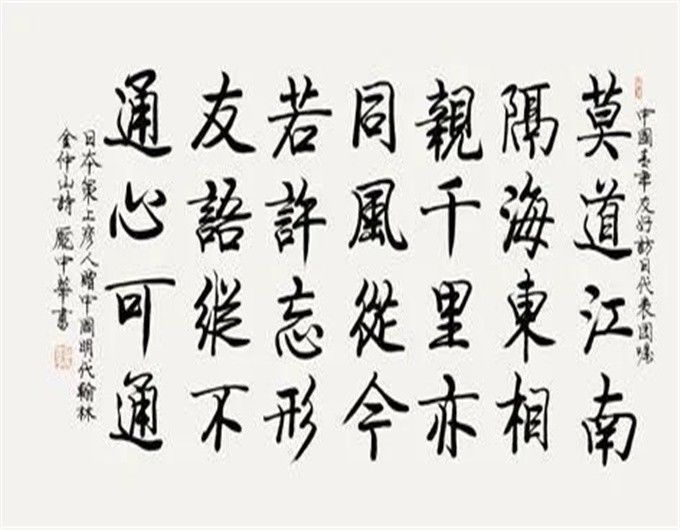 中國青年友好訪日代表團囑
莫道江南
隔海東相
親千里亦
同風從今
若許忘形
友語縱不
通心可通
日本策上彦人贈中國明代翰林
金仲山詩 龐中華書